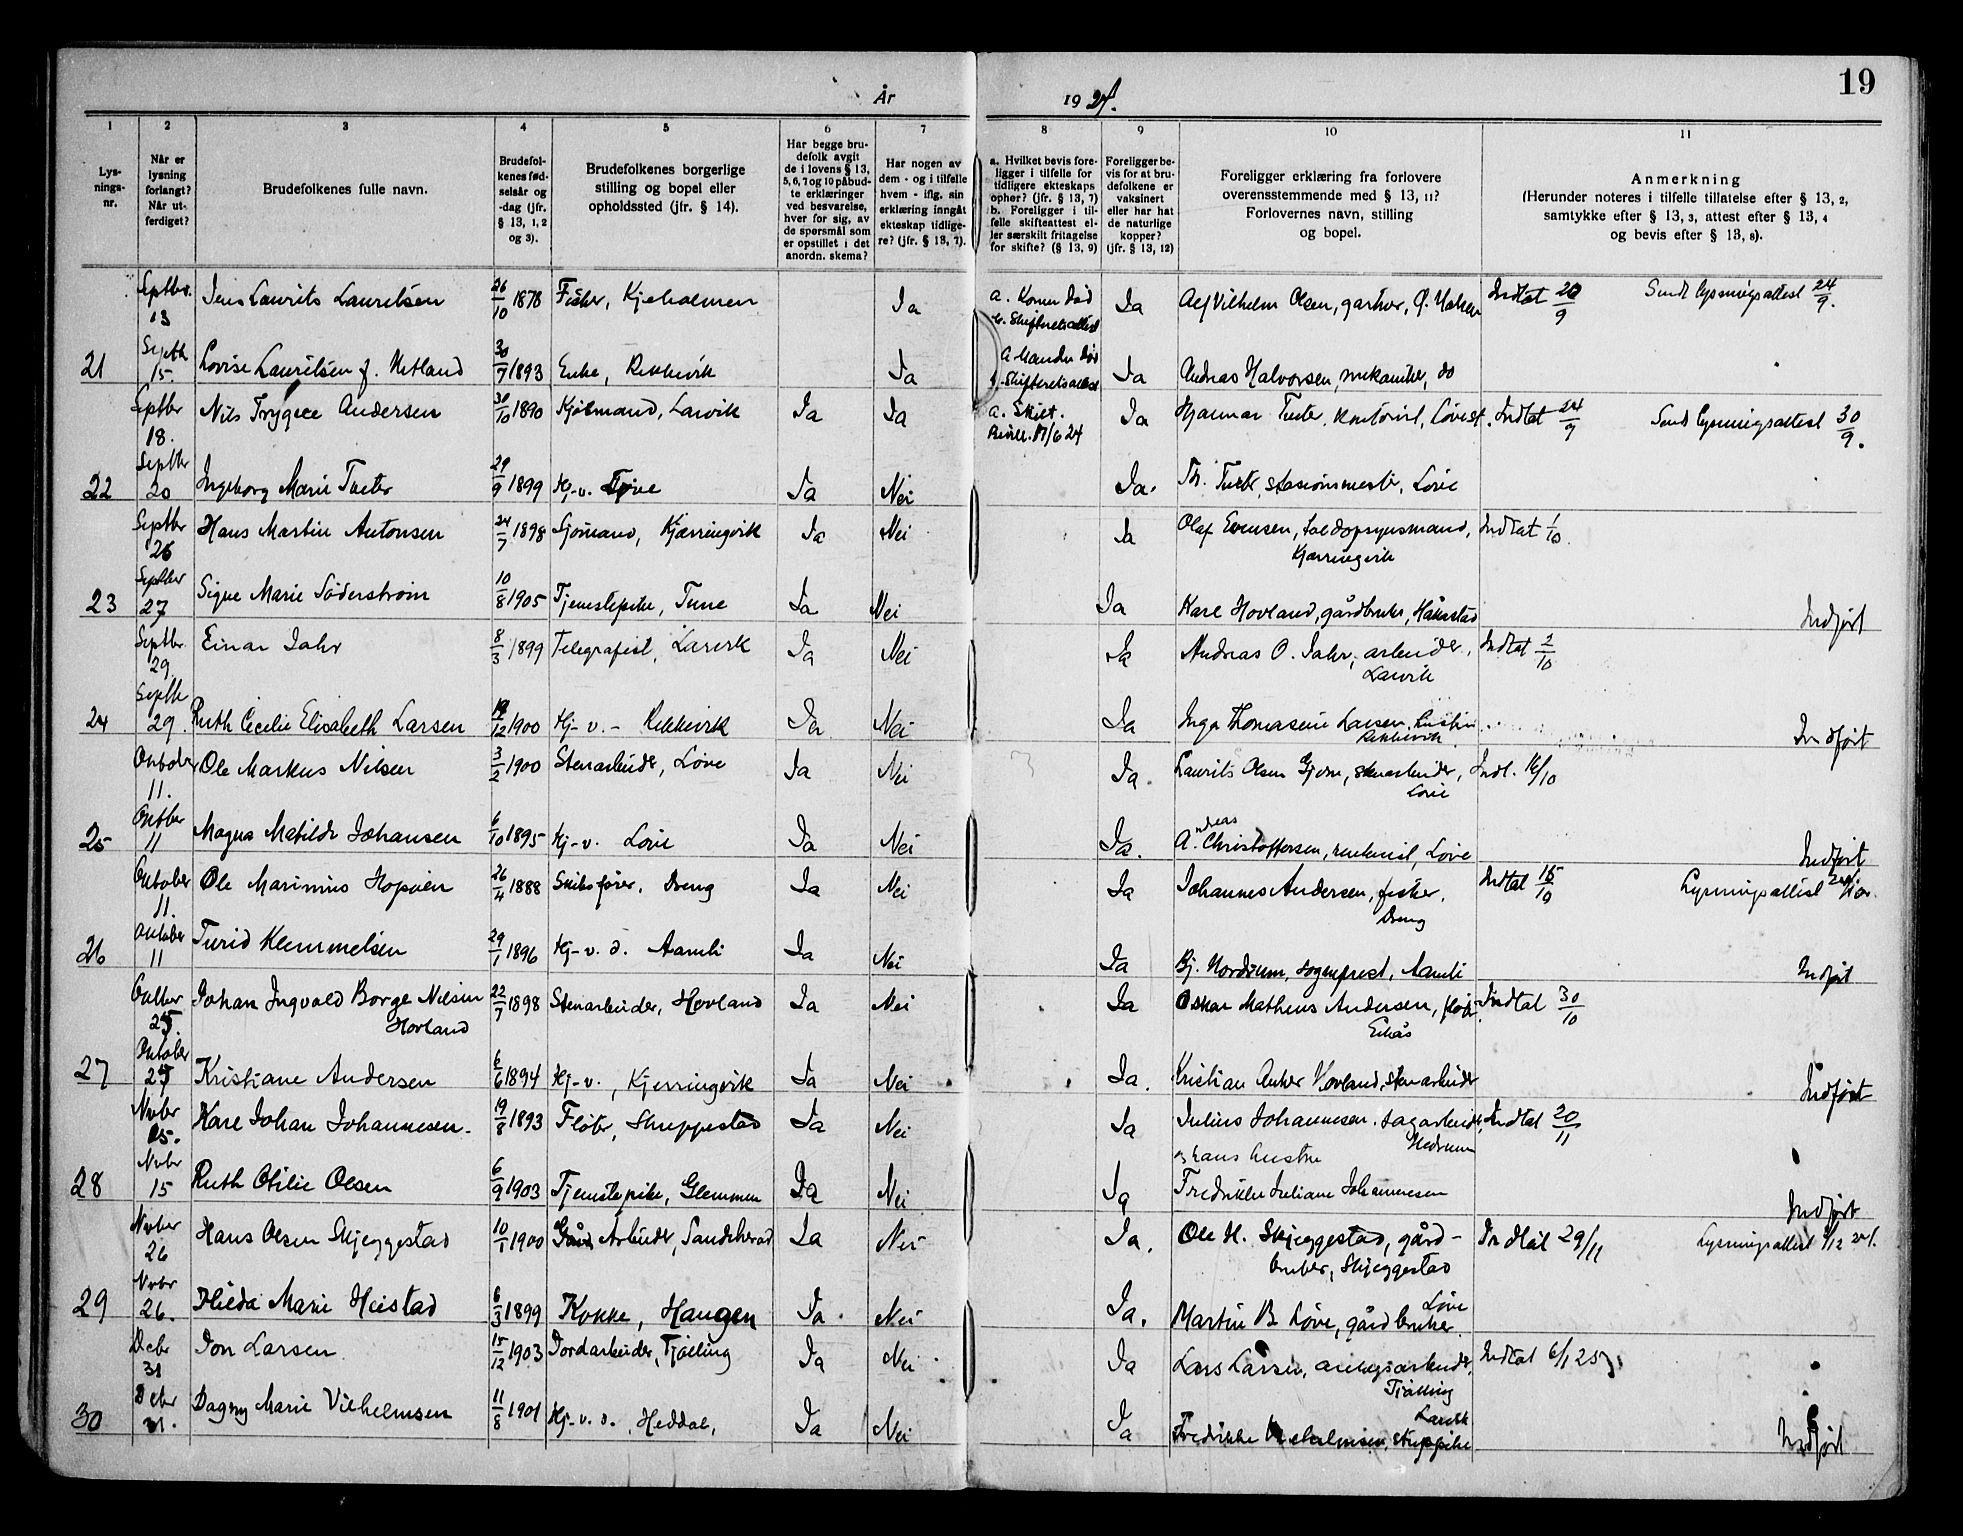 19
År 1924.
1 2 3 4 5 6 7 8 9 10 11
Lysnings-nr.
Når er lysning forlangt? Når utferdiget?
Brudefolkenes fulle navn.
Brudefolkenes fødselsår og -dag (jfr. § 13, 1, 2 og 3).
Brudefolkenes borgerlige stilling og bopel eller opholdssted (jfr. § 14).
Har begge brudefolk avgit de i lovens § 13, 5, 6, 7 og 10 påbudte erklæringer ved besvarelse, hver for sig, av de spørsmål som er opstillet i det anordn. skema?
Har nogen av dem - og i tilfelle hvem - iflg. sin erklæring inngåt ekteskap tidligere? (jfr. § 13, 7).
a. Hvilket bevis foreligger i tilfelle for tidligere ekteskaps ophør? (jfr. § 13, 7) b. Foreligger i tilfelle skifteattest eller særskilt fritagelse for skifte? (§ 13, 9)
Foreligger bevis for at brudefolkene er vaksinert eller har hat de naturlige kopper? (jfr. § 13, 12)
Foreligger erklæring fra forlovere overensstemmende med § 13, 11? Forlovernes navn, stilling og bopel.
Anmerkning (Herunder noteres i tilfelle tillatelse efter § 13, 2, samtykke efter § 13, 3, attest efter § 13, 4 og bevis efter § 13, 8).
Septbr. 13 Jens Laurits Lauritsen 26/10 1878 Fisker, Kjeholmen Ja a. Konen død b. Skifteretsattest Ja Alf Vilhelm Olsen, Indtat 20/9 Sendt lysningsattest 24/9.
21 Septb 15. Lovise Lauritsen f. Hetland 30/7 1893 Enke, Rekkevik Ja a Manden død b. Skifteretsattest Ja Andreas Halvorsen, mekaniker, do
Septbr 18. Nils Trygve Andersen 30/10 1890 Kjøbmand, Larvik Ja Ja a. Skilt. Bevill. 17/6 24 Ja Hjalmar Tveter, kontorist, Løvest. Indtat 24/9 Send lysningsattest 30/9.
22 Septbr 20 Ingeborg Marie Tveter 29/9 1899 Hj.-v. Løve Ja Nei Ja. Th. Tveter, stasionmester, Løve
Septbr 26 Hans Martin Antonsen 24/7 1898 Sjømand, Kjærringvik Ja Nei Ja Olaf Evensen, toldopsynsmand, Kjærringvik Indtat 1/10.
23 Septbr 27 Signe Marie Söderström 10/8 1905 Tjenestepike, Tune Ja Nei Ja Karl Hovland, gårdbruker, Indført
Septbr. 29. Einar Jahr 8/3 1899 Telegrafist, Larvik Ja Nei Ja Andreas O. Jahr, arbeider, Larvik Indtat 2/10
24 Septb 29. Ruth Cecilie Elisabeth Larsen 1900 Hj-v. - Rekkevik Ja Nei Ja Inga Thomasine Larsen, Rekkevik Indført
Oktober 11. Ole Markus Nilsen 3/2 1900 Stenarbeider, Løve Ja Nei Ja. Laurits Olsen Gjern, stenarbeider, Løve Indt. 16/10
25 Oktber 11 Magna Matilde Johansen 6/10 1895 Hj-v. Løve Ja Nei Ja. Andreas Christoffersen, Løve Indført
Oktober 11. Ole Marinius Hopøen 26/4 1888 Skibsfører, Dreng Ja Nei Ja Johannes Andersen, fisker, Dreng Indtat 15/10 Lysningsattest
26 Oktober 11 Turid Klemmetsen 29/1 1896 Hj-v. d. Aamli Ja Nei Ja Bj. Nordrum, sogneprest, Aamli Indført
Oktber 25. Johan Ingvald Borge Nilsen Hovland 22/7 1898 Stenarbeider, Hovland Ja Nei Ja Oskar Matheus Andersen, fløter, Indtat 30/10
27 Oktober 25 Kristiane Andersen 6/6 1894 Hj-v., Kjerringvik Ja Nei Ja. Kristian Anker Hovland, stenarbeider Indført
Novbr 15. Karl Johan Johannesen. 19/8 1893 Fløter, Skreppestad Ja Nei Ja Julius Johannesen, sagarbeider, Hedrum Indtat 20/11
28 Novbr 15 Ruth Otilie Olsen 6/9 1903 Tjenestepike, Glemmen Ja Nei Ja og hans hustru Fredrikke Juliane Johannesen Indført
Novber 26 Hans Olsen Skjeggestad 10/1 1900 Arbeider, Sandeherad Ja Nei Ja. Ole H. Skjeggestad, gårdbruker, Skjeggestad Indtat 29/11 Lysningsattest 1/12 24.
29 Novbr 26. Hilda Marie Heistad 6/3 1899 Kokke, Haugen Ja. Nei Ja. Martin B. Løve, gårdbruker, Løve
Decbr 31 Jon Larsen 15/12 1903 Jordarbeider, Tjølling Ja Nei. Ja Lars Larsen, anlegsarbeider, Tjølling Indtat 6/1 25
30 Decbr 31. Dagny Marie Vilhelmsen 11/8 1901 Hj-v. d., Heddal, Ja Nei Ja Fredrikke Vilhelmsen, strykepike, Larvik Indført